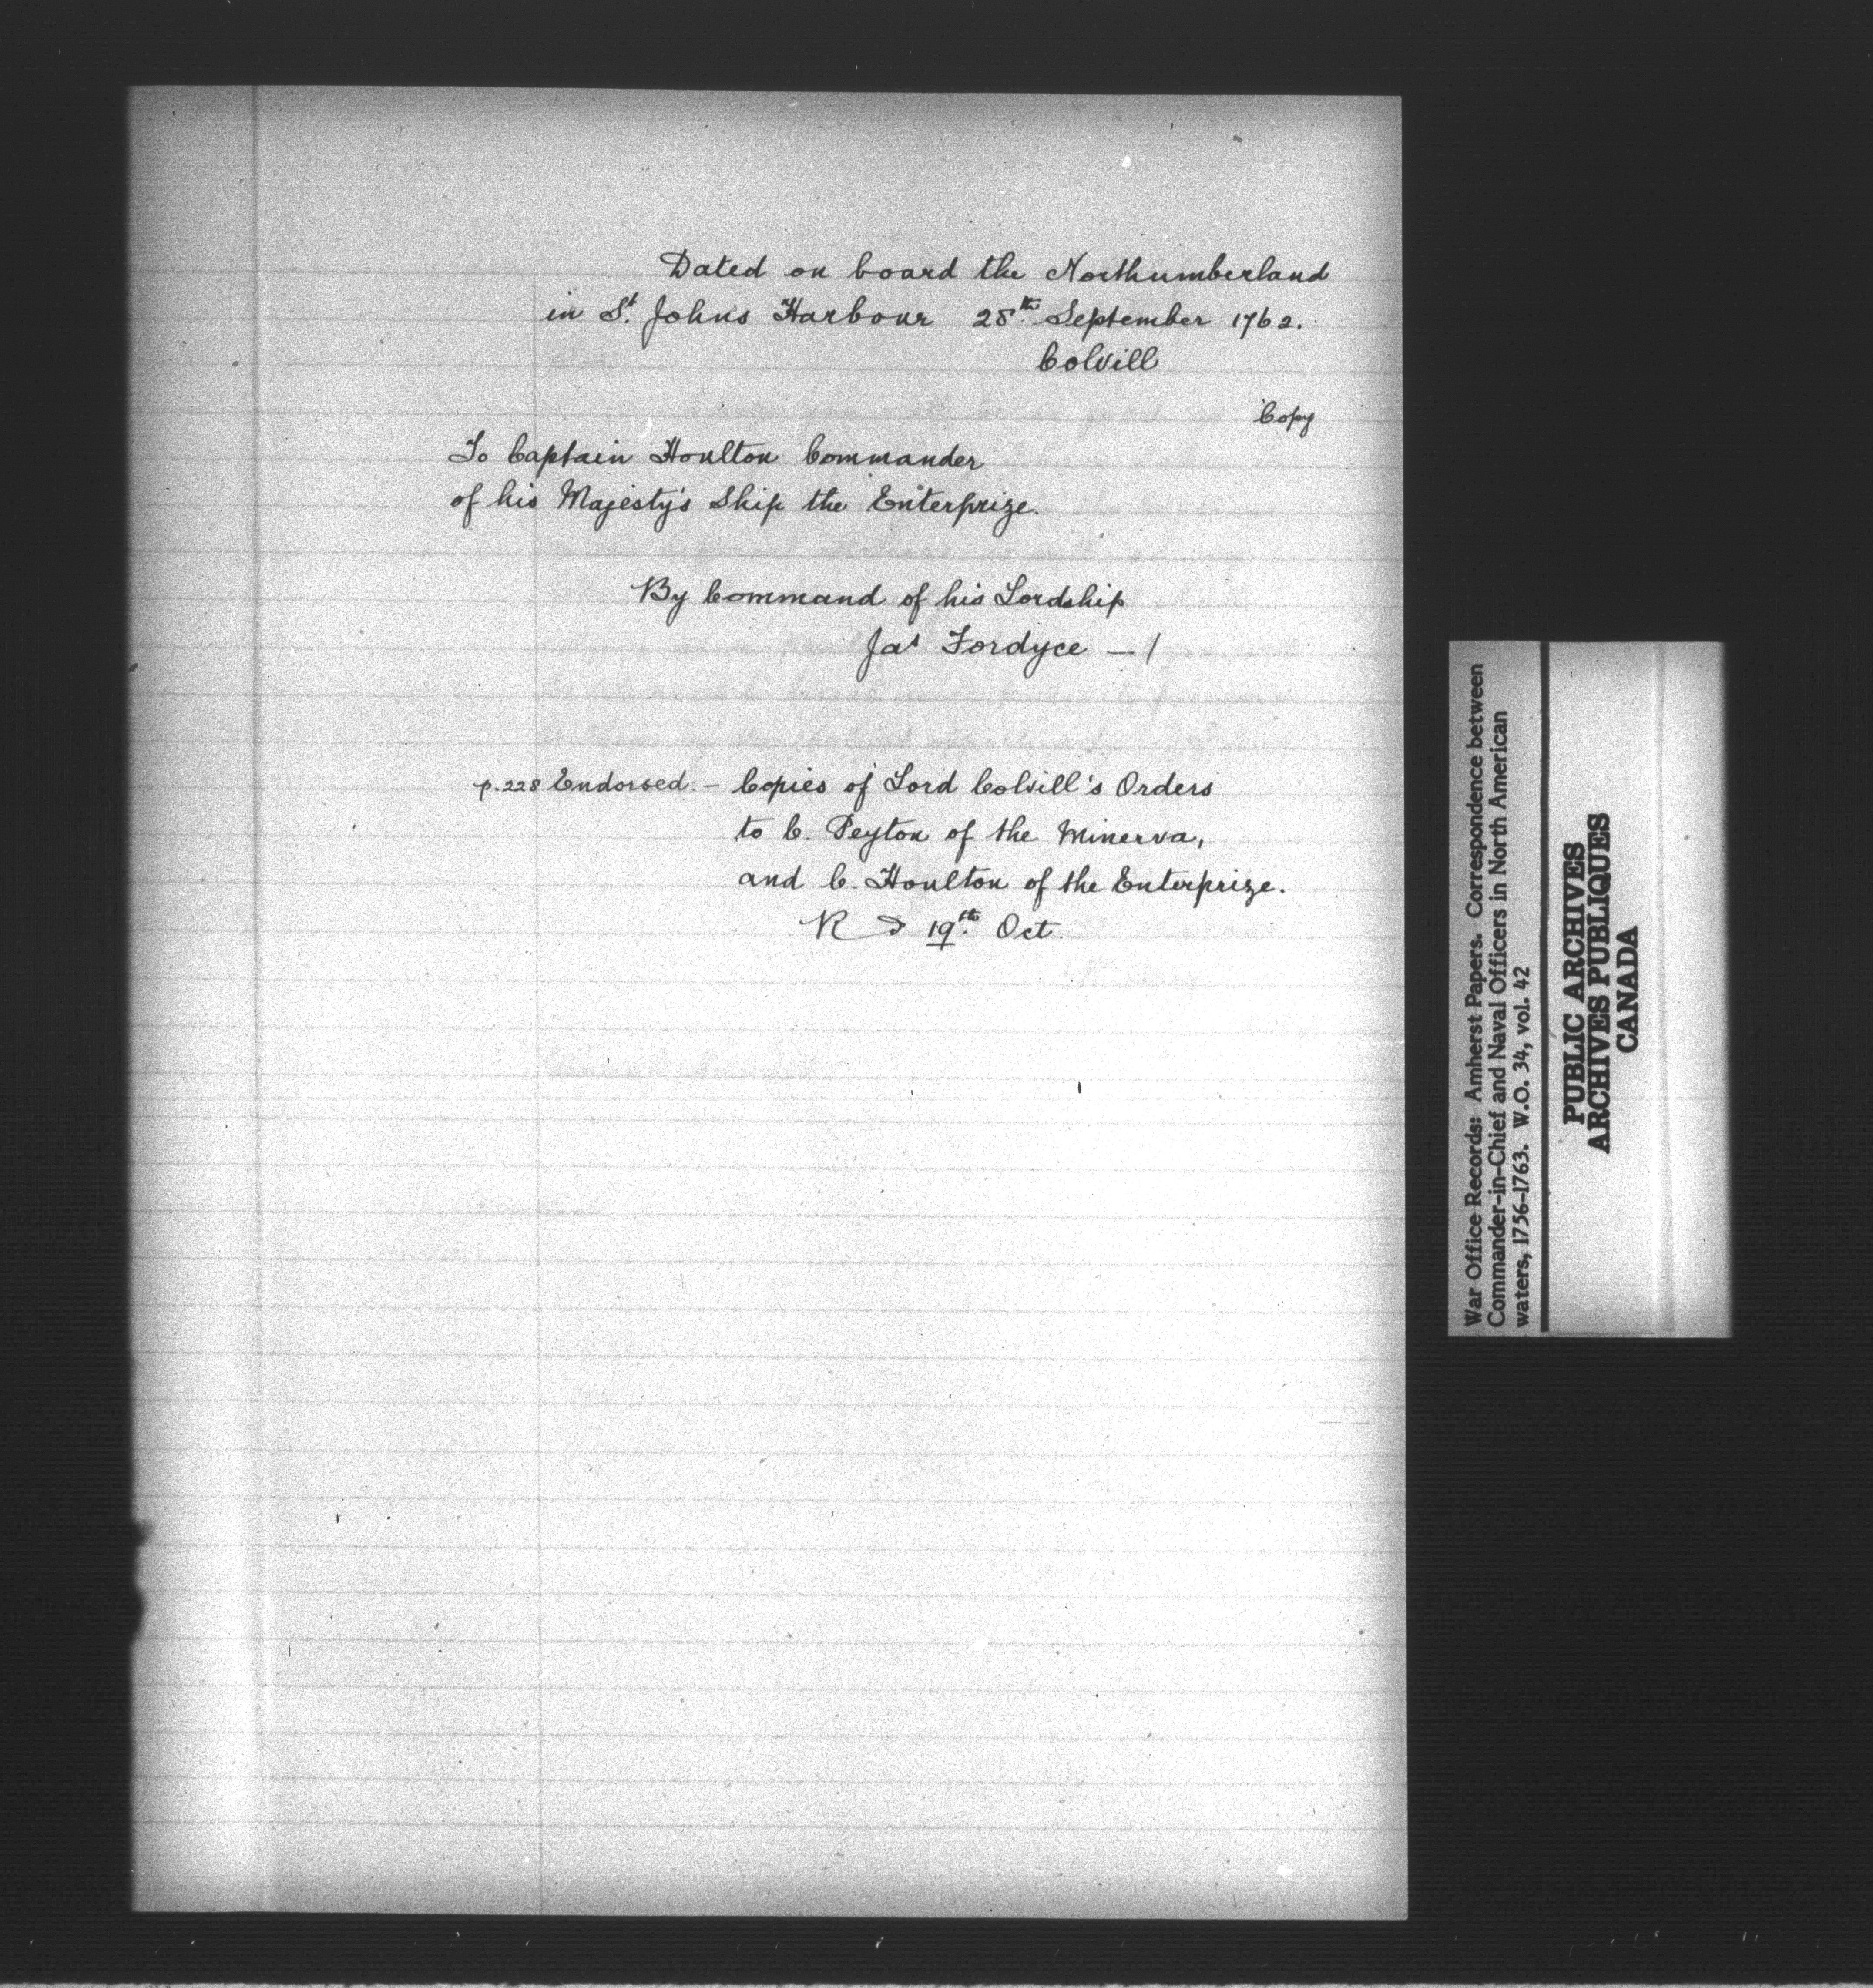 Dated on board the Northumberland
in St. Johns Harbour 28th September 1762.
Colvill
Copy
To Captain Houlton Commander
of his Majesty's Ship the Enterprize.
By Command of his Lordship
Jas Fordyce —/
p.228 Endorsed. – Copies of Lord Colvill's Orders
to C. Peyton of the Minerva,
and C. Houlton of the Enterprize.
R 19th Oct.
War Office Records: Amherst Papers. Correspondence between
Commander-in-Chief and Naval Officers in North American
waters, 1756-1763. W.O. 34, vol. 42
PUBLIC ARCHIVES
ARCHIVES PUBLIQUES
CANADA